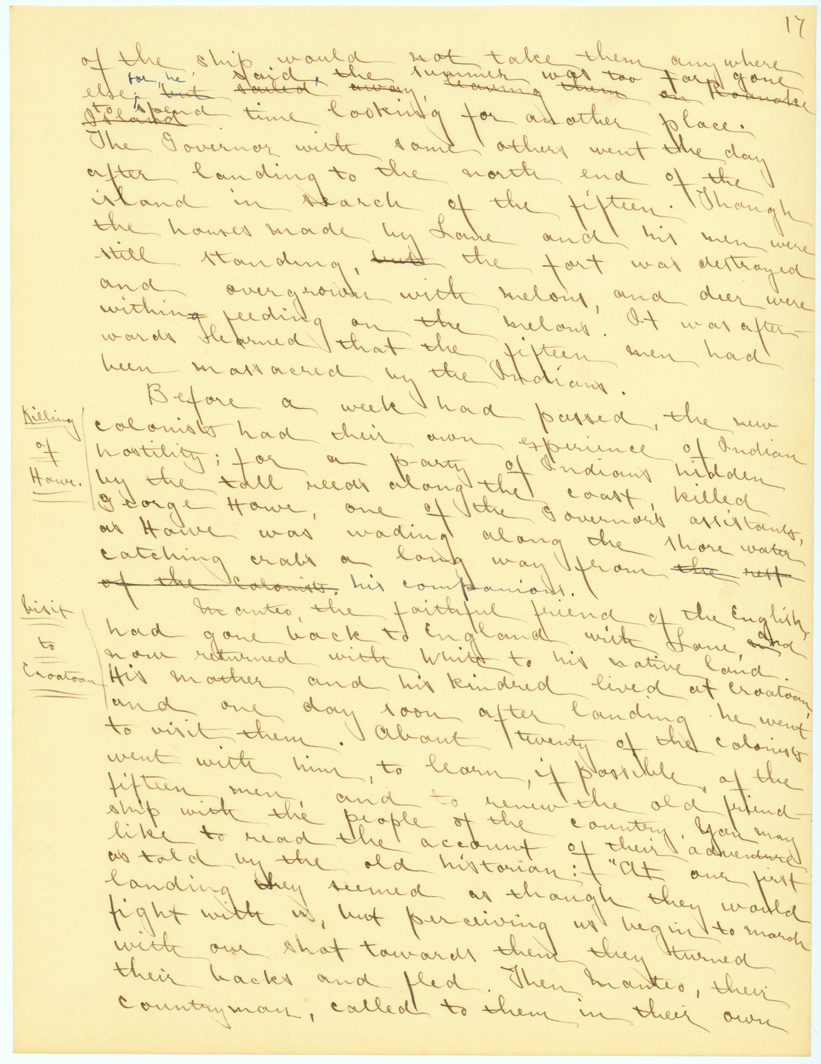 17
of the ship would not take them anywhere
else; for, he said, the summer was too far gone
but sailed away, leaving them on Roanoke
to spend time looking for another place.
Island
The Governor with some others went the day
after landing to the north end of the
island in search of the fifteen. Though
the houses made by Lane and his men were
still standing, but the fort was destroyed
and overgrown with melons, and deer were
within feeding on the melons. It was after-
wards learned that the fifteen men had
been massacred by the Indians.
Before a week had passed, the new
Killing
of
Howe.
colonists had their own experience of Indian
hostility; for a party of Indians hidden
by the tall reeds along the coast, killed
George Howe, one of the Governor's assistants,
as Howe was wading along the shore water
catching crabs a long way from the rest
of the colonists. his companions.
Manteo, the faithful friend of the English,
Visit
to
Croatoan
had gone back to England with Lane, and
now returned with White to his native land.
His mother and his kindred lived at Croatoan,
and one day soon after landing he went
to visit them. About twenty of the colonists
went with him, to learn, if possible, of the
fifteen men, and to renew the old friend-
ship with the people of the country. You may
like to read the account of their adventure
as told by the old historian: "At our first
landing they seemed as though they would
fight with us, but perceiving us begin to march
with our shot towards them they turned
their backs and fled. Then Manteo, their
countryman, called to them in their own